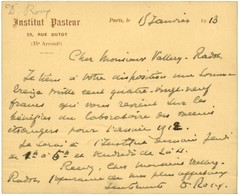 Dr Roux
Institut Pasteur
25, RUE DUTOT
(XVe Arrondt)
Paris, le 15 Janvier 1913
Cher Monsieur Vallery-Radot
Je tiens à votre disposition une somme
treize mille cent quatre-vingt-neuf
francs qui vous revient sur les
bénéfices du Laboratoire des
étrangers pour l'année 1912.
Je serai à l'Institut Pasteur jeudi
de à 5h et vendredi de
Recevez, cher Monsieur Vallery-
Radot, l'expression de mes plus affectueux
sentiments Dr Roux